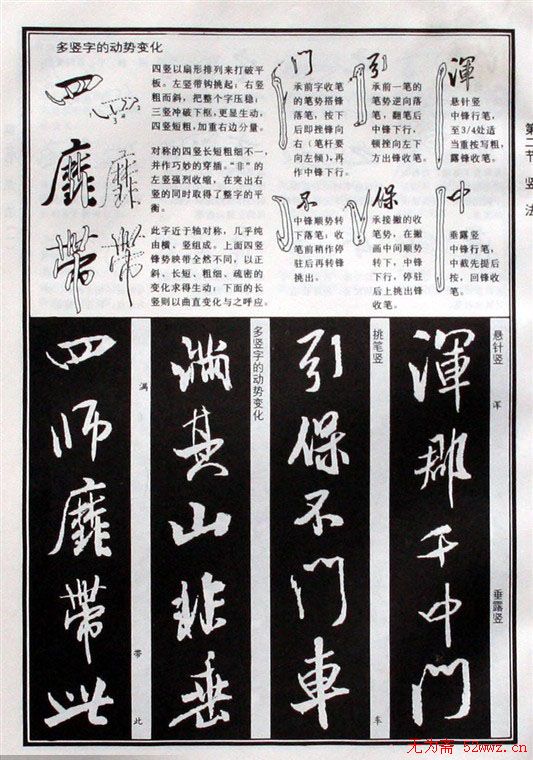 多竖字的动势变化
四竖以扇形排列来打破平
板。左竖带钩挑起；右竖
粗而斜，把整个字压稳；
三竖冲破下框，更显生动，
四竖短粗，加重右边分量。
对称的四竖长短粗细不一，
并作巧妙的穿插。“非”的
左竖强烈收缩，在突出右
竖的同时取得了整字的平
衡。
此字近于轴对称，几乎纯
由横、竖组成。上面四竖
锋势映带全然不同，以正
斜、长短、粗细、疏密的
变化求得生动；下面的长
竖则以曲直变化与之呼应。
四
靡
帶
門
承前字收笔
的笔势搭锋
落笔，按下
后即挫锋向
右（笔杆要
向左倾），再
作中锋下行。
引
承前一笔的
笔势逆向落
笔，翻笔后
中锋下行，
顿挫向左下
方出锋收笔。
渾
悬针竖
中锋行笔，
至3/4处适
当重按写粗，
露锋收笔。
不
中锋顺势转
下落笔；收
笔前稍作停
驻后再转锋
挑出。
保
承接撇的收
笔势，在撇
画中间顺势
转下，中锋
下行，停驻
后上挑出锋
收笔。
中
垂露竖
中锋行笔，
中截先提后
按，回锋收
笔。
第二节 竖法
悬针竖
浑
垂露竖
渾郡千中門
挑笔竖
车
引保不門車
多竖字的动势变化
滿其山非垂
满
带
此
四师靡帶此
无为斋 52wwz.cn